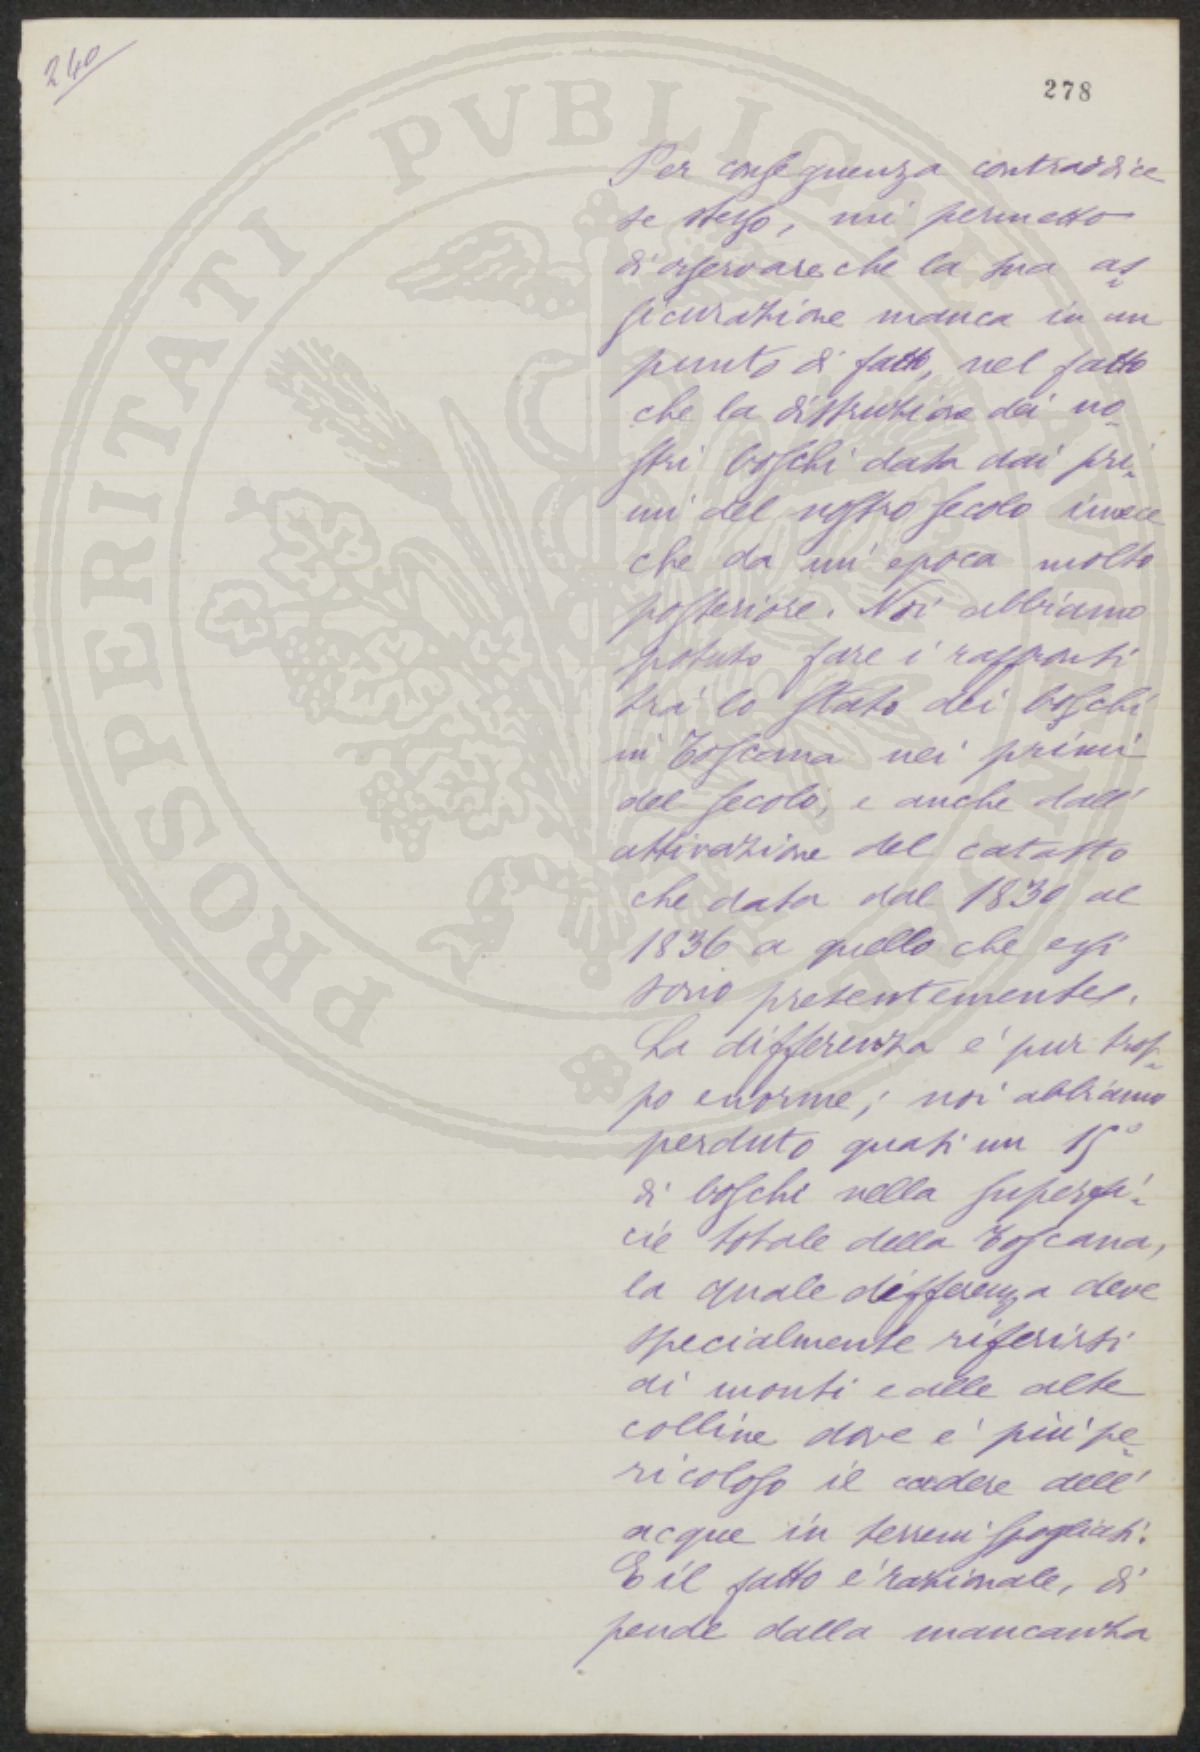 240
278
PVBLICAE
PROSPERITATI
Per conseguenza contraddice
se stesso, mi permetto
di osservare che la sua as-
sicurazione manca in un
punto di fatto, nel fatto
che la distruzione dei no-
stri boschi data dai pri-
mi del nostro secolo invece
che da un' epoca molto
posteriore. Noi abbiamo
potuto fare i raffronti
tra lo stato dei boschi
in Toscana nei primi
del secolo, e anche dall'
attivazione del catasto
che data dal 1830 al
1836 a quello che essi
sono presentemente.
La differenza e' pur trop-
po enorme; noi abbiamo
perduto quasi un 15°
di boschi nella superfi-
cie totale della Toscana,
la quale differenza deve
specialmente riferirsi
ai monti e alle alte
colline dove e' piu' pe-
ricoloso il cadere dell'
acque in terreni spogliati.
E il fatto e' razionale, di
pende dalla mancanza